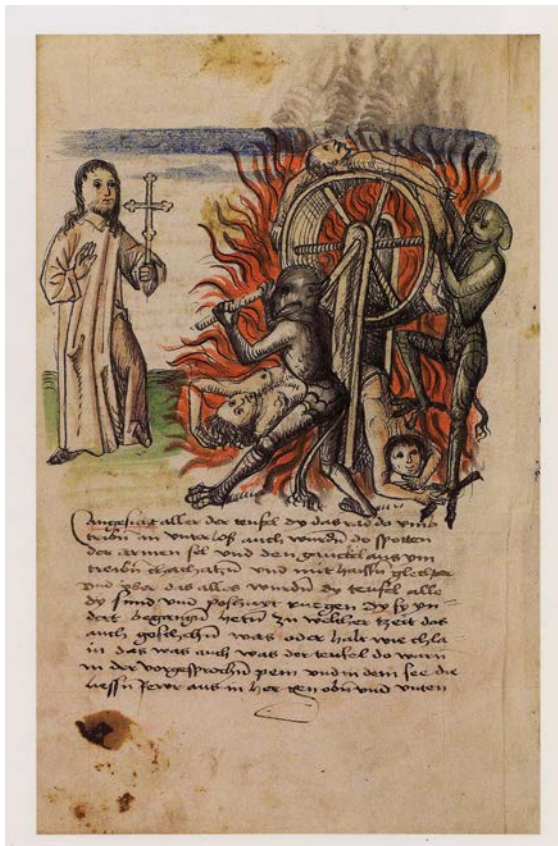 Angesicht aller der teufel dy das rad do vmb
tribn in vnterloß auch wurdn do spotten
der armen sel vnd den gauckel aus ym
treibn vnd mit haissn glechter
Vnd yber das alles wurdn dy teufel alle
dy sund vnd poshait ruegen dy sy yn-
dert begangn hetn zu welicher tzeit das
auch geschehn was oder halt wie chla
in das was auch was der teufel do warn
in der vorgesprochn pein vnd in dem see die
liessn fewr aus in obn vnd vnten